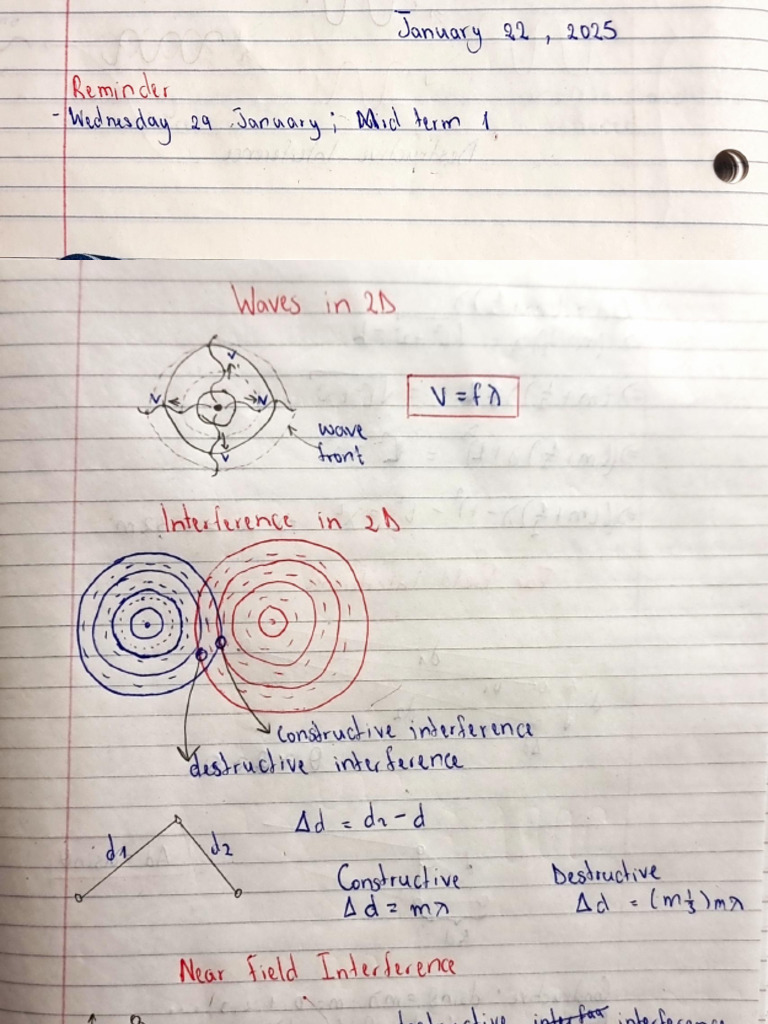 January 22, 2025
Reminder
- Wednesday 29 January; Mid term 1
Waves in 2D
V
V
V
V
V = fλ
wave
front
Interference in 2D
constructive interference
destructive interference
Δd = d2 - d
d1
d2
Constructive
Δd = mλ
Destructive
Δd = (m½)mλ
Near Field Interference
destructive interference